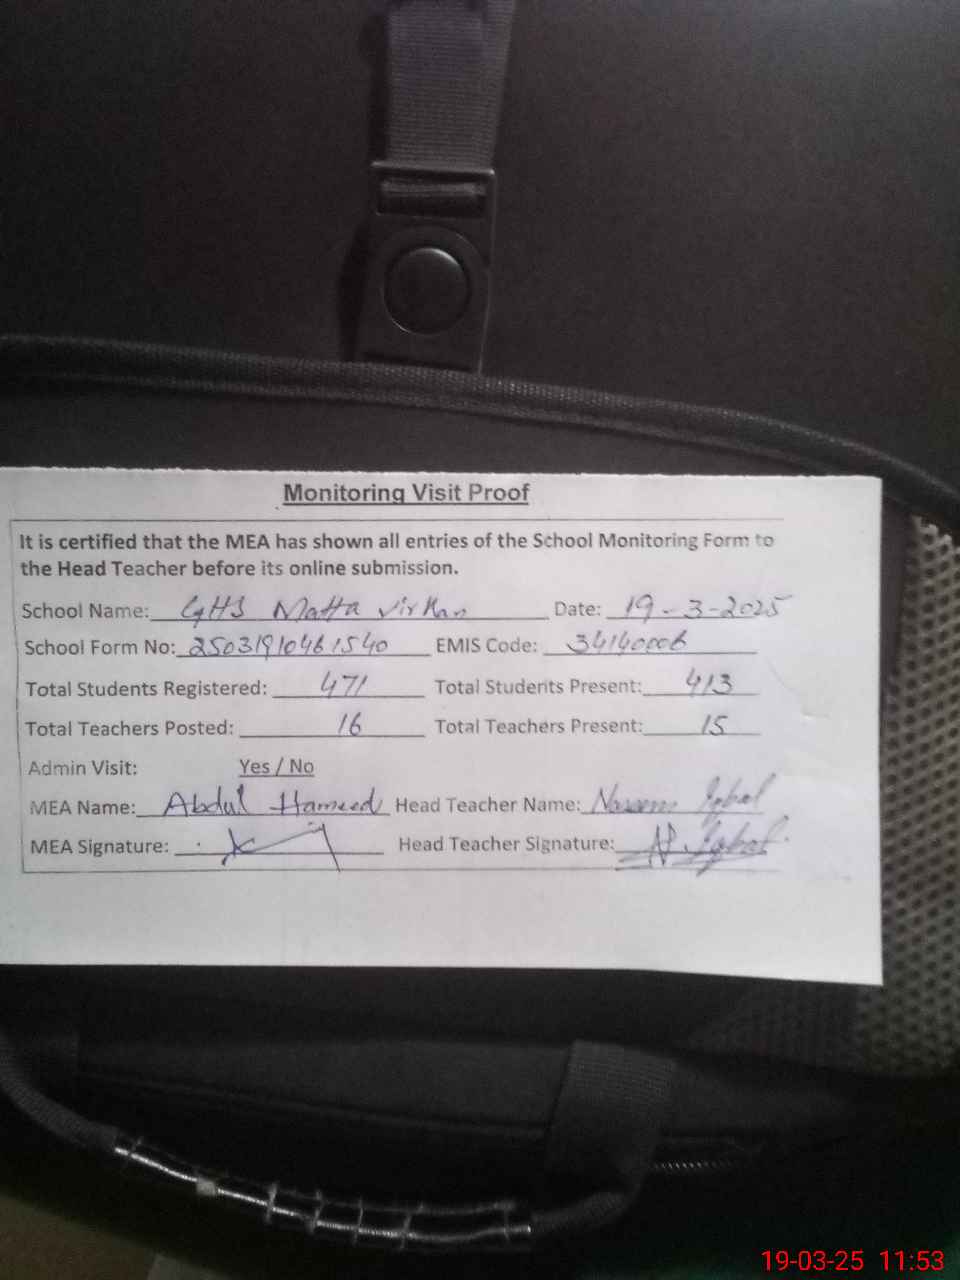 Monitoring Visit Proof
It is certified that the MEA has shown all entries of the School Monitoring Form to
the Head Teacher before its online submission.
School Name: GHS Matta Virkan Date: 19-3-2025
School Form No: 25031910461540 EMIS Code: 34140006
Total Students Registered: 471 Total Students Present: 413
Total Teachers Posted: 16 Total Teachers Present: 15
Admin Visit: Yes / No
MEA Name: Abdul Hameed Head Teacher Name: Naseem Iqbal
MEA Signature: Head Teacher Signature: N. Iqbal
19-03-25 11:53